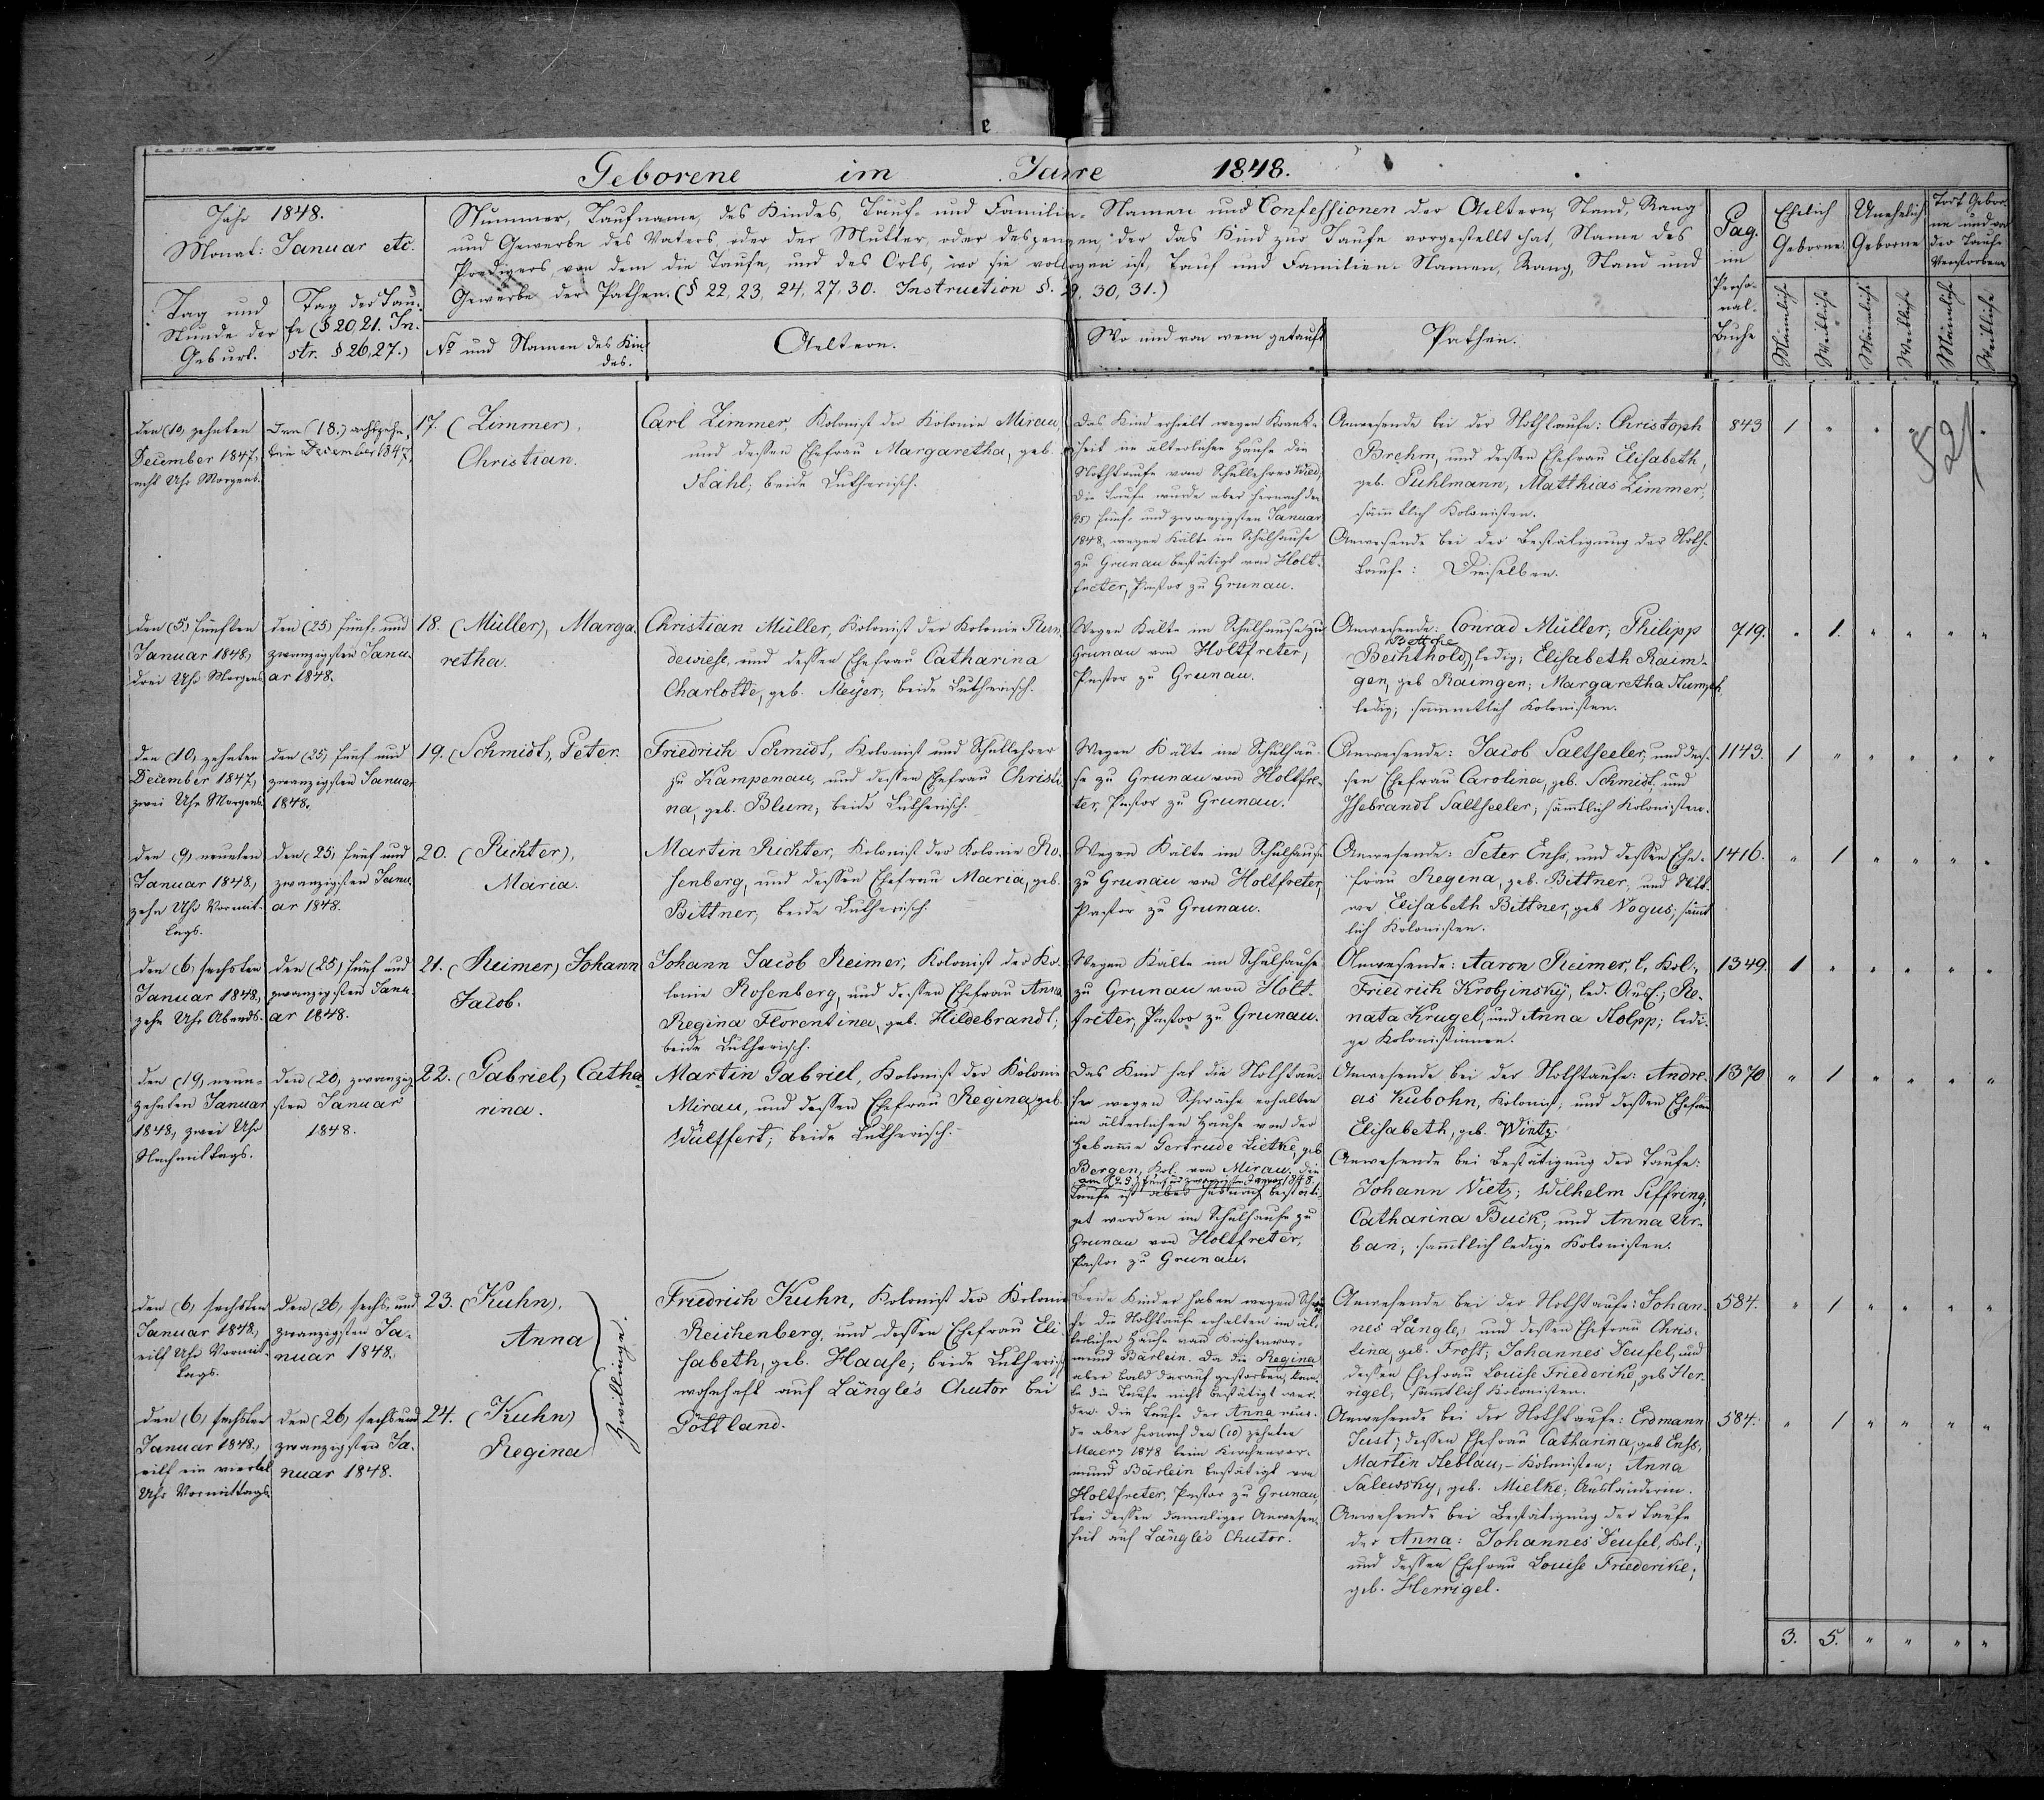 Geborene im Jahre 1848.
Jahr 1848.
Monat: Januar etc.
Tag und
Stunde der
Geburt.
Tag der Tau-
fe (§ 20, 21. In-
str. § 26, 27.)
Nummer, Taufname, des Kindes, Tauf- und Familien-Namen und Confessionen der Aeltern, Stand, Rang
und Gewerbe des Vaters oder der Mutter, oder desjenigen, der das Kind zur Taufe vorgestellt hat, Name des
Predigers von dem die Taufe, und des Orts, wo sie vollzogen ist, Tauf und Familien-Namen, Rang, Stand und
Gewerbe der Pathen. (§ 22, 23, 24, 27, 30. Instruction §. 29, 30, 31.)
No und Namen des Kin-
des.
Aeltern.
Wo und von wem getauft
Pathen.
Pag.
im
Perso-
nal-
Buche
Ehelich
Geborne.
Unehelich
Geborne
Todt Gebor-
ne und vor
der Taufe
Verstorbene
Männlich
Weiblich
Männlich
Weiblich
Männlich
Weiblich
52
den (10) zehnten
December 1847,
acht Uhr Morgens.
den (18.) achtzehn-
ten December 1847.
17. (Zimmer),
Christian.
Carl Zimmer, Kolonist der Kolonie Mirau,
und dessen Ehefrau Margaretha, geb.
Stahl; beide Lutherisch.
Das Kind erhielt wegen Krank-
heit im älterlichen Hause die
Nothtaufe vom Schullehrer Wied,
die Taufe wurde aber hernach den
(25) fünf- und zwanzigsten Januar
1848, wegen Kälte im Schulhause
zu Grunau bestätigt von Holt-
freter, Pastor zu Grunau.
Anwesende bei der Nothtaufe: Christoph
Brehm, und dessen Ehefrau Elisabeth,
geb. Puhlmann, Matthias Zimmer,
sämmtlich Kolonisten.
Anwesende bei der Bestätigung der Noth-
taufe: Dieselben.
843 1 " " " " "
den (5) fünften
Januar 1848,
drei Uhr Morgens
den (25) fünf- und
zwanzigsten Janu-
ar 1848.
18. (Müller), Marga-
retha.
Christian Müller, Kolonist der Kolonie Run-
dewiese, und dessen Ehefrau Catharina
Charlotte, geb. Meyer; beide Lutherisch.
Wegen Kälte im Schulhause zu
Grunau von Holtfreter,
Pastor zu Grunau.
Anwesende: Conrad Müller; Philipp
Bechthold, ledig; Elisabeth Raim-
gen, geb Raimgen; Margaretha Stumpf,
ledig; sämmtlich Kolonisten.
719. " 1. " " " "
den (10) zehnten
December 1847,
zwei Uhr Morgens
den (25) fünf und
zwanzigsten Januar
1848.
19. (Schmidt), Peter.
Friedrich Schmidt, Kolonist und Schullehrer
zu Kampenau, und dessen Ehefrau Christi-
na, geb. Blum; beide Lutherisch.
Wegen Kälte im Schulhau-
se zu Grunau von Holtfre-
ter, Pastor zu Grunau.
Anwesende: Jacob Saltseeler, und des-
sen Ehefrau Carolina, geb. Schmidt, und
Isebrandt Saltseeler; sämtlich Kolonisten.
1143. 1 " " " " "
den (9) neunten
Januar 1848,
zehn Uhr Vormit-
tags.
den (25) fünf und
zwanzigsten Janu-
ar 1848.
20. (Richter),
Maria.
Martin Richter, Kolonist der Kolonie Ro-
senberg, und dessen Ehefrau Maria, geb.
Bittner, beide Lutherisch.
Wegen Kälte im Schulhause
zu Grunau von Holtfreter,
Pastor zu Grunau.
Anwesende: Peter Enss, und dessen Ehe-
frau Regina, geb. Bittner, und Witt-
we Elisabeth Bittner, geb Vogus; sämt
lich Kolonisten.
1416. " 1 " " " "
den (6) sechsten
Januar 1848,
zehn Uhr Abends.
den (25) fünf und
zwanzigsten Janu-
ar 1848.
21. (Reimer) Johann
Jacob.
Johann Jacob Reimer, Kolonist der Ko-
lonie Rosenberg, und dessen Ehefrau Anna
Regina Florentina, geb. Hildebrandt;
beide Lutherisch.
Wegen Kälte im Schulhause
zu Grunau von Holt-
freter, Pastor zu Grunau.
Anwesende: Aaron Reimer, l. Kol.,
Friedrich Krobjinsky, led. Ausl.; Re-
nata Krugel, und Anna Kolpp; ledi-
ge Kolonistinnen.
1349. 1 " " " " "
den (19) neun-
zehnten Januar
1848, zwei Uhr
Nachmittags.
den (20) zwanzig-
sten Januar
1848.
22. (Gabriel) Catha-
rina.
Martin Gabriel, Kolonist der Kolonie
Mirau, und dessen Ehefrau Regina, geb.
Wülffert; beide Lutherisch.
Das Kind hat die Nothtau-
fe wegen Schwäche erhalten
im älterlichen Hause von der
Hebamme Gertrude Lietke, geb
Bergen, Kol. von Mirau. Die
am (25) fünf und zwanzigsten Januar 1848.
Taufe ist aber hernach bestäti-
get worden im Schulhause zu
Grunau von Holtfreter,
Pastor zu Grunau.
Anwesende bei der Nothtaufe: Andre-
as Kubohn, Kolonist; und dessen Ehefrau
Elisabeth, geb. Wintz.
Anwesende bei Bestätigung der Taufe:
Johann Vietz; Wilhelm Siffring;
Catharina Buck; und Anna Ur-
ban; sämmtlich ledige Kolonisten.
1370 " 1 " " " "
den (6) sechsten
Januar 1848,
eilf Uhr Vormit-
tags.
den (26) sechs- und
zwanzigsten Ja-
nuar 1848.
23. (Kuhn),
Anna
Zwillinge.
Friedrich Kuhn, Kolonist der Kolonie
Reichenberg, und dessen Ehefrau Eli-
sabeth, geb. Haase; beide Lutherisch
wohnhaft auf Längle's Chutor bei
Göttland.
Beide Kinder haben wegen Schwä-
che die Nothtaufe erhalten im äl-
terlichen Hause vom Kirchenvor-
mund Bärlein. Da die Regina
aber bald darauf gestorben, konn-
te die Taufe nicht bestätigt wer-
den. Die Taufe der Anna wur-
de aber hernach den (10) zehnten
Maerz 1848 beim Kirchenvor-
mund Bärlein bestätigt von
Holtfreter, Pastor zu Grunau,
bei dessen damaliger Anwesen-
heit auf Längle's Chutor.
Anwesende bei der Nothtaufe: Johan-
nes Längle, und dessen Ehefrau Chris-
tina, geb. Frost; Johannes Deufel, und
dessen Ehefrau Louise Friederike, geb Her-
rigel; sämtlich Kolonisten.
584. " 1 " " " "
den (6) sechsten
Januar 1848,
eilf ein viertel
Uhr Vormittags.
den (26) sechs und
zwanzigsten Ja-
nuar 1848.
24. (Kuhn)
Regina
Anwesende bei der Nothtaufe: Erdmann
Just; dessen Ehefrau Catharina, geb Enss;
Martin Neblau, - Kolonisten; Anna
Salewsky, geb. Mielke, Ausländerin.
Anwesende bei Bestätigung der Taufe
der Anna: Johannes Deufel, Kol.,
und dessen Ehefrau Louise Friederike,
geb. Herrigel.
584. " 1 " " " "
3. 5. " " " "